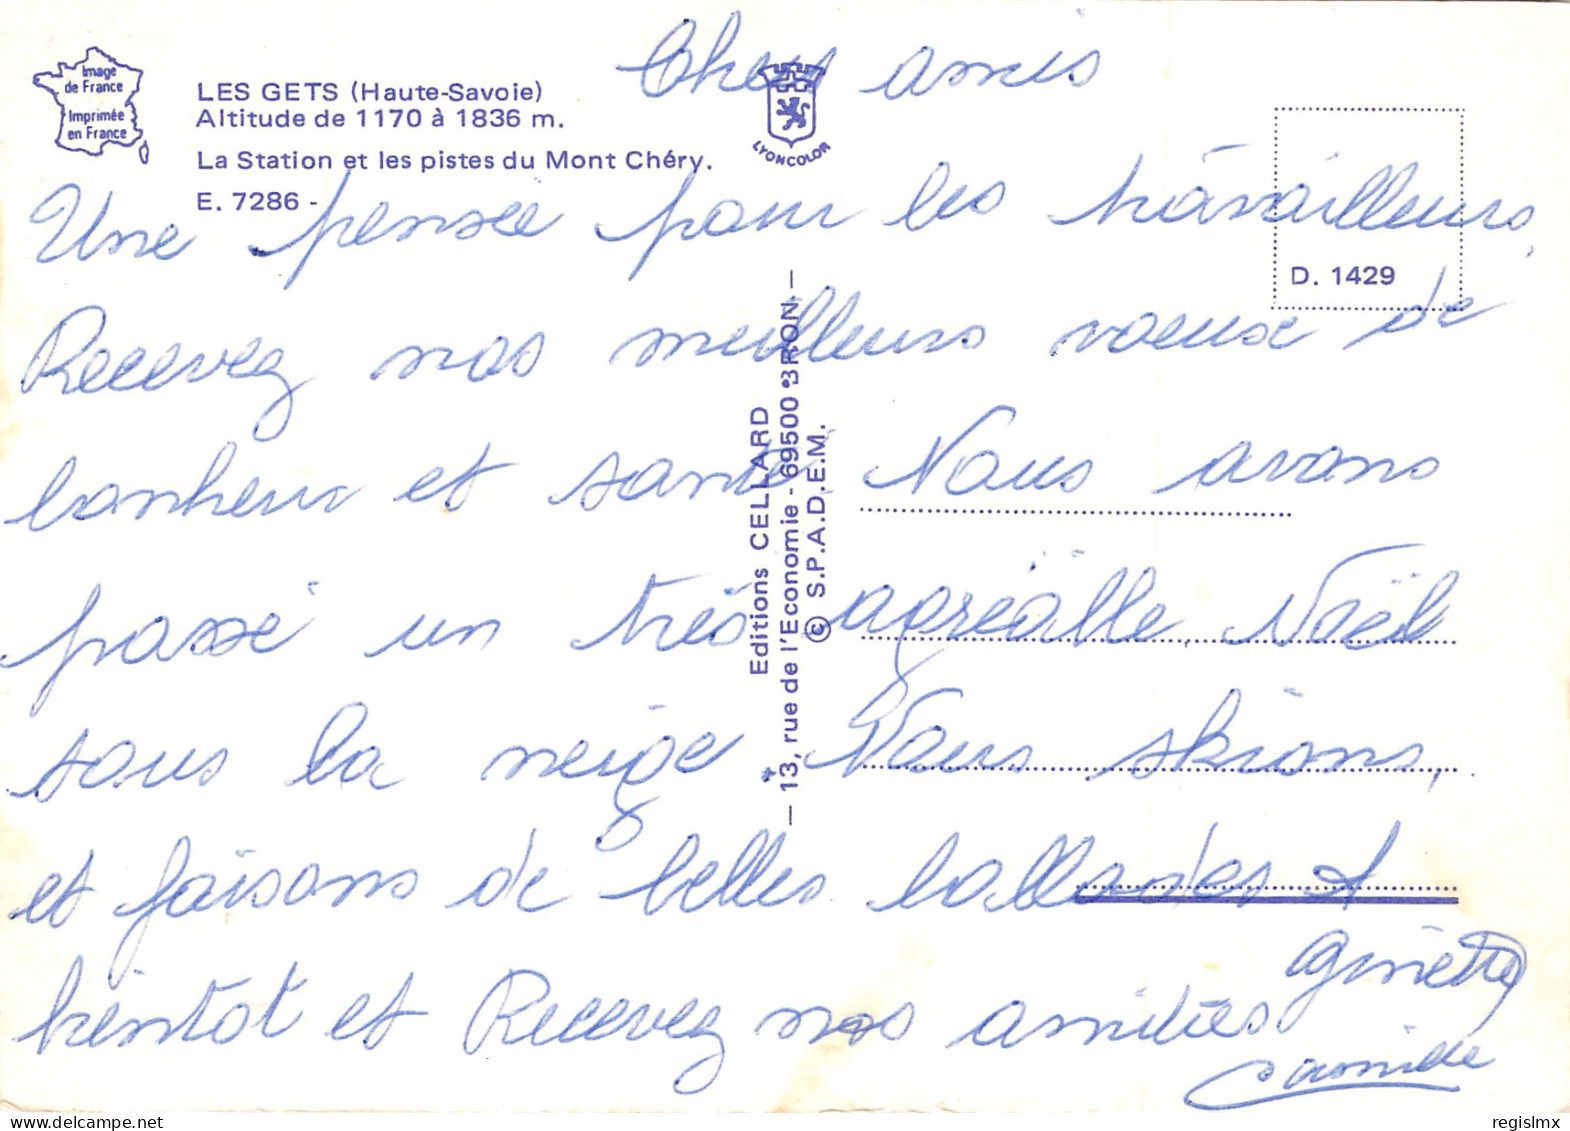 Image
de France
Imprimée
en France
LES GETS (Haute-Savoie)
Altitude de 1170 à 1836 m.
La Station et les pistes du Mont Chéry.
E. 7286 -
LYONCOLOR
D. 1429
Editions CELLARD
— 13, rue de l'Economie - 69500 BRON —
© S.P.A.D.E.M.
Chers amis
Une pensée pour les travailleurs,
Recevez nos meilleurs voeux de
bonheur et santé. Nous avons
passé un très agréable, Noël
sous la neige Nous skions,
et faisons de belles ballades A
bientot et Recevez nos amitiés
Ginette
Camille
regislmx